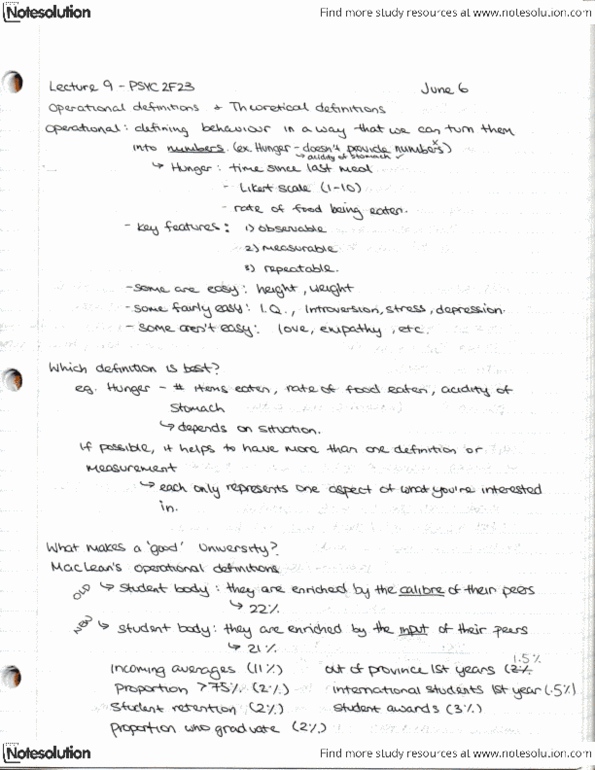 Notesolution Find more study resources at www.notesolution.com
Lecture 9 - PSYC 2F23 June 6
Operational definitions + Theoretical definitions
Operational: defining behaviour in a way that we can turn them
into numbers. (ex. Hunger - doesn't provide numbers) x
↳ acidity of stomach ✓
↳ Hunger: time since last meal
- Likert scale (1-10)
- rate of food being eaten.
- key features: 1) observable
2) measurable
3) repeatable.
- some are easy: height, weight
- some fairly easy: I.Q., introversion, stress, depression.
- some aren't easy: love, empathy, etc.
Which definition is best?
eg. Hunger - # items eaten, rate of food eaten, acidity of
stomach
↳ depends on situation.
If possible, it helps to have more than one definition or
measurement
↳ each only represents one aspect of what you're interested
in.
What makes a 'good' University?
MacLean's operational definitions
OLD ↳ student body: they are enriched by the calibre of their peers
↳ 22%
NEW ↳ student body: they are enriched by the input of their peers
↳ 21%
1.5%
incoming averages (11%) out of province 1st years (2%
Proportion >75% (2%) international students 1st year (.5%)
Student retention (2%) student awards (3%)
proportion who graduate (2%)
Notesolution Find more study resources at www.notesolution.com